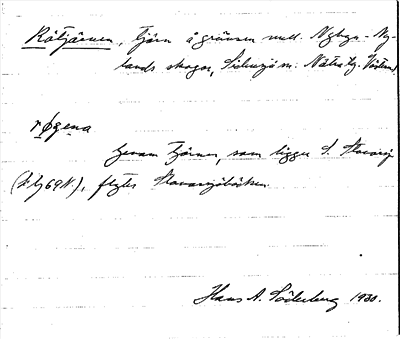 Rötjärnen, tjärn å gränsen mell. Nybyn-Ny-
lands skogar, Sidensjö sn. Nätra tg. Västernorrl.
røgena
Genom tjärnen, som ligger S.
(bl. 69 N), flyter Stavarsjöbäcken.
Hans A. Söderberg 1930.